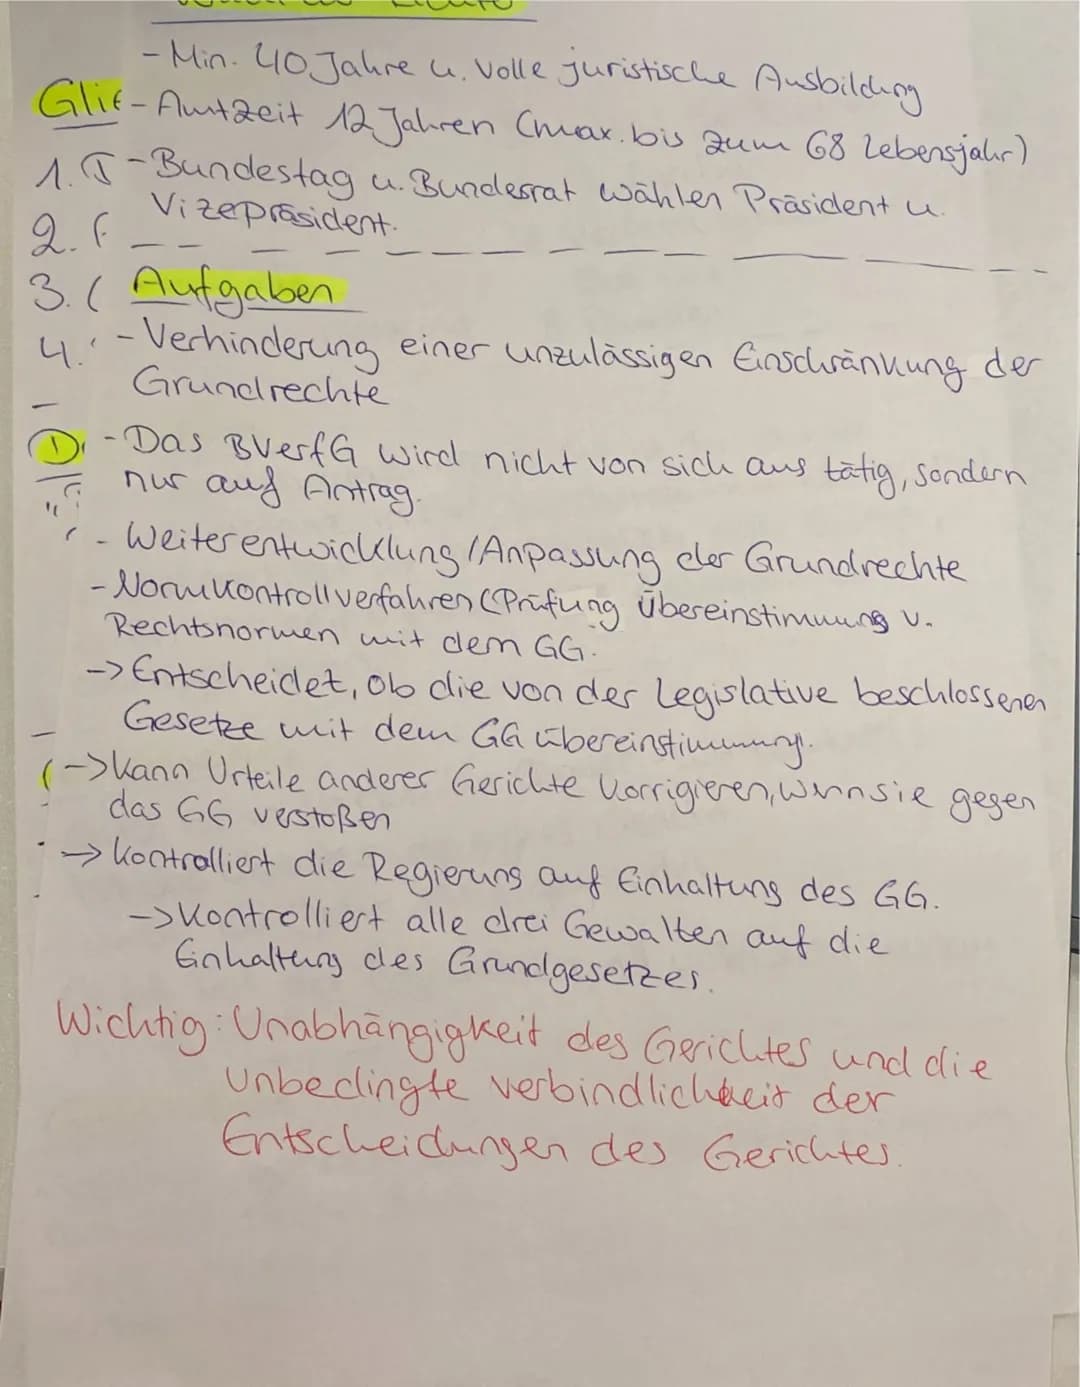 - Min. 40 Jahre u. volle juristische Ausbildung
Glie - Amtzeit 12 Jahren (max. bis zum 68 Lebensjahr)
1. - Bundestag u. Bundesrat wählen Präsident u.
Vizepräsident.
2.
3. ( Aufgaben
4. - Verhinderung einer unzulässigen Einschränkung der
Grundrechte
1 - Das BVerfG wird nicht von sich aus tätig, sondern
nur auf Antrag.
- Weiterentwicklung / Anpassung der Grundrechte
- Normkontrollverfahren (Prüfung Übereinstimmung v.
Rechtsnormen mit dem GG.
-> Entscheidet, ob die von der Legislative beschlossenen
Gesetze mit dem GG übereinstimmung.
-> Kann Urteile anderer Gerichte Korrigieren, wenn sie gegen
das GG verstoßen
-> Kontrolliert die Regierung auf Einhaltung des GG.
-> Kontrolliert alle drei Gewalten auf die
Einhaltung des Grundgesetzes.
Wichtig: Unabhängigkeit des Gerichtes und die
Unbedingte verbindlichkeit der
Entscheidungen des Gerichtes.